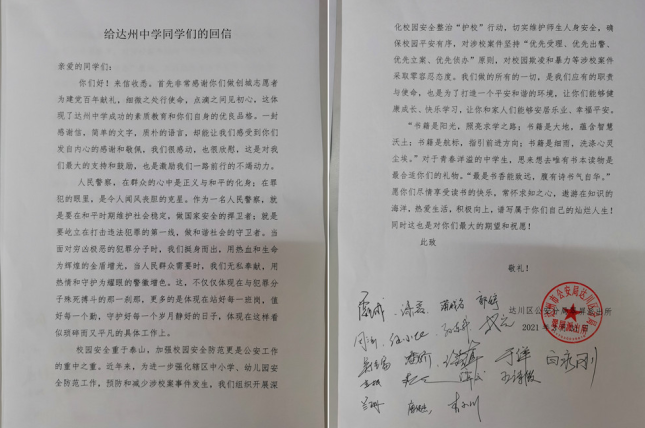 给达州中学同学们的回信
亲爱的同学们：
你们好！来信收悉。首先非常感谢你们做创城志愿者
为建党百年献礼，细微之处行使命，点滴之间见初心，这体
现了达州中学成功的素质教育和你们自身的优良品格。一封
感谢信，简单的文字，质朴的语言，却能让我们感受到你们
发自内心的感谢和敬佩，我们很感动，也很欣慰，这是对我
们最大的支持和鼓励，也是激励我们一路前行的不竭动力。
人民警察，在群众的心中是正义与和平的化身；在罪
犯的眼里，是令人闻风丧胆的克星。作为一名人民警察，就
是要在和平时期维护社会稳定，做国家安全的捍卫者；就是
要屹立在打击违法犯罪的第一线，做和谐社会的守卫者。当
面对穷凶极恶的犯罪分子时，我们挺身而出，用热血和生命
为辉煌的金盾增光，当人民群众需要时，我们无私奉献，用
热情和守护为耀眼的警徽增色。这，不仅仅体现在与犯罪分
子殊死搏斗的那一刹那，更多的是体现在站好每一班岗，值
好每一个勤，守护好每一个岁月静好的日子，体现在这样看
似琐碎而又平凡的具体工作上。
校园安全重于泰山，加强校园安全防范更是公安工作
的重中之重，近年来，为进一步强化辖区中小学、幼儿园安
全防范工作，预防和减少涉校案事件发生，我们组织开展深
化校园安全整治“护校”行动，切实维护师生人身安全，确
保校园平安有序，对涉校案件坚持“优先受理、优先出警、
优先立案、优先侦办”原则，对校园欺凌和暴力等涉校案件
采取零容忍态度。我们做的所有的一切，是我们应有的职责
与使命，也是为了打造一个平安和谐的环境，让你们能够健
康成长、快乐学习，让你和家人们能够安居乐业、幸福平安。
“书籍是阳光，照亮求学之路；书籍是大地，蕴含智慧
沃土；书籍是航标，指引前进方向；书籍是细雨，洗涤心灵
尘埃。”对于青春洋溢的中学生，思来想去唯有书本读物是
最合适你们的礼物。“最是书香能致远，腹有诗书气自华。”
愿你们尽情享受读书的快乐，常怀求知之心，遨游在知识的
海洋，热爱生活，积极向上，谱写属于你们自己的灿烂人生！
同时这也是对你们最大的期望和祝愿！
此致
敬礼！
达川区公安分局翠屏派出所
2021年